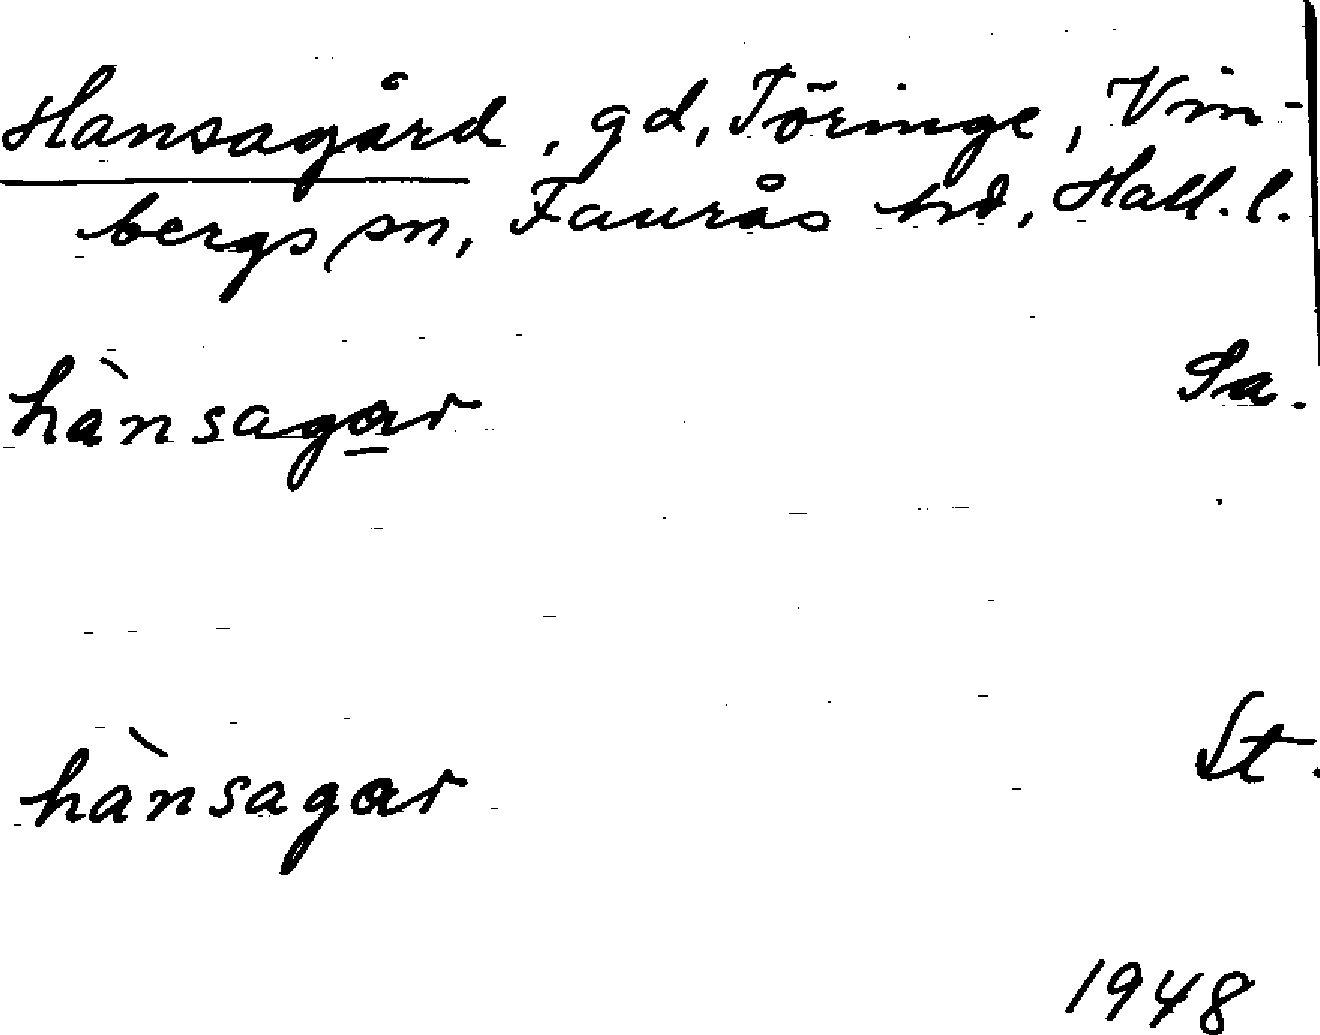 Hansagård, gd, Töringe, Vin-
bergs sn, Faurås hd, Hall. l.
hànsagar Sa.
hànsagar St.
1948